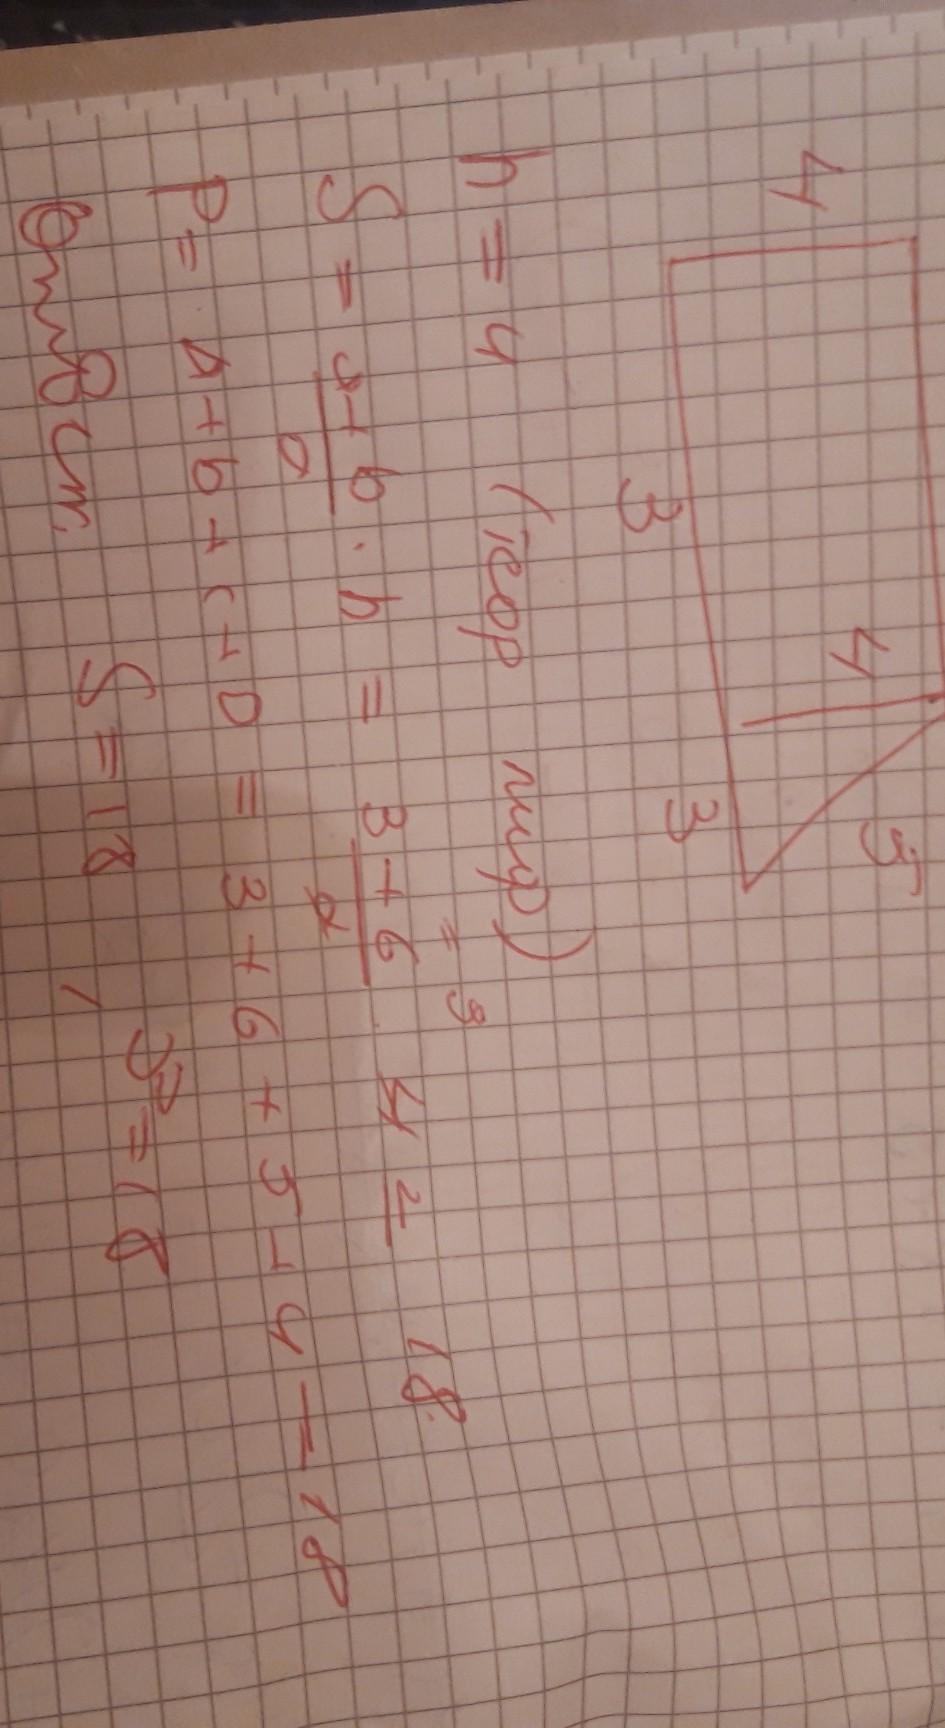 4 4 5
3 3
h = 4 (теор пиф)
S = a+b/2 · h = 3+6/2 · 4 2 = 9 18
P = a+b+c+D = 3+6+5+4=18
Ответ: S=18, P=18